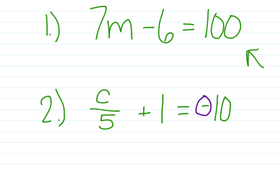 1.) 7m - 6 = 100
2.) c/5 + 1 = -10